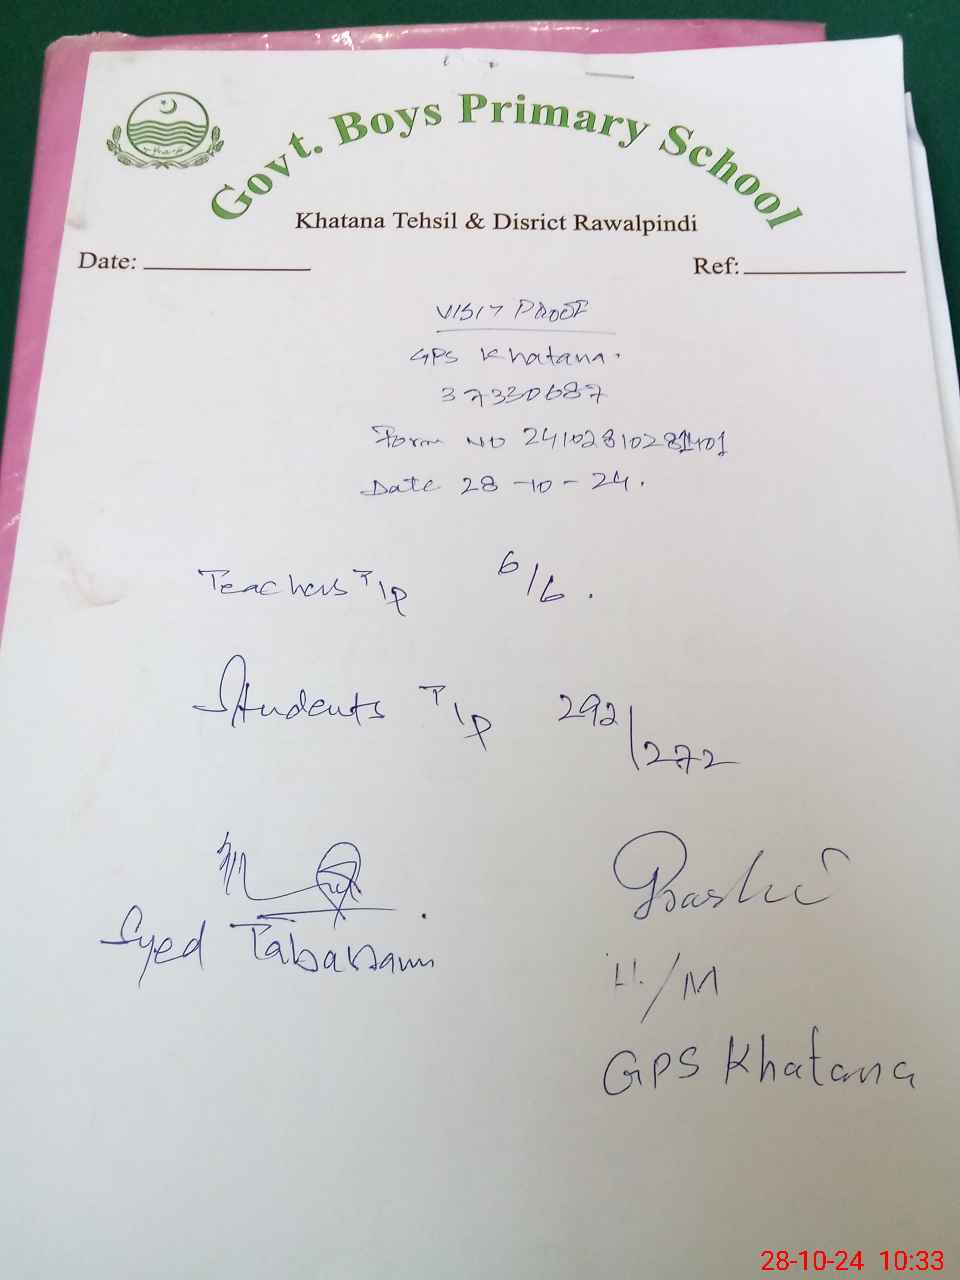 Govt. Boys Primary School
Khatana Tehsil & Disrict Rawalpindi
Date:
Ref:
VISIT PROOF
GPS Khatana.
37330687
Form No
Date 28-10-24.
Teachers T/P 6/6.
Students T/P 292/272
Syed
H/M
GPS Khatana
28-10-24 10:33